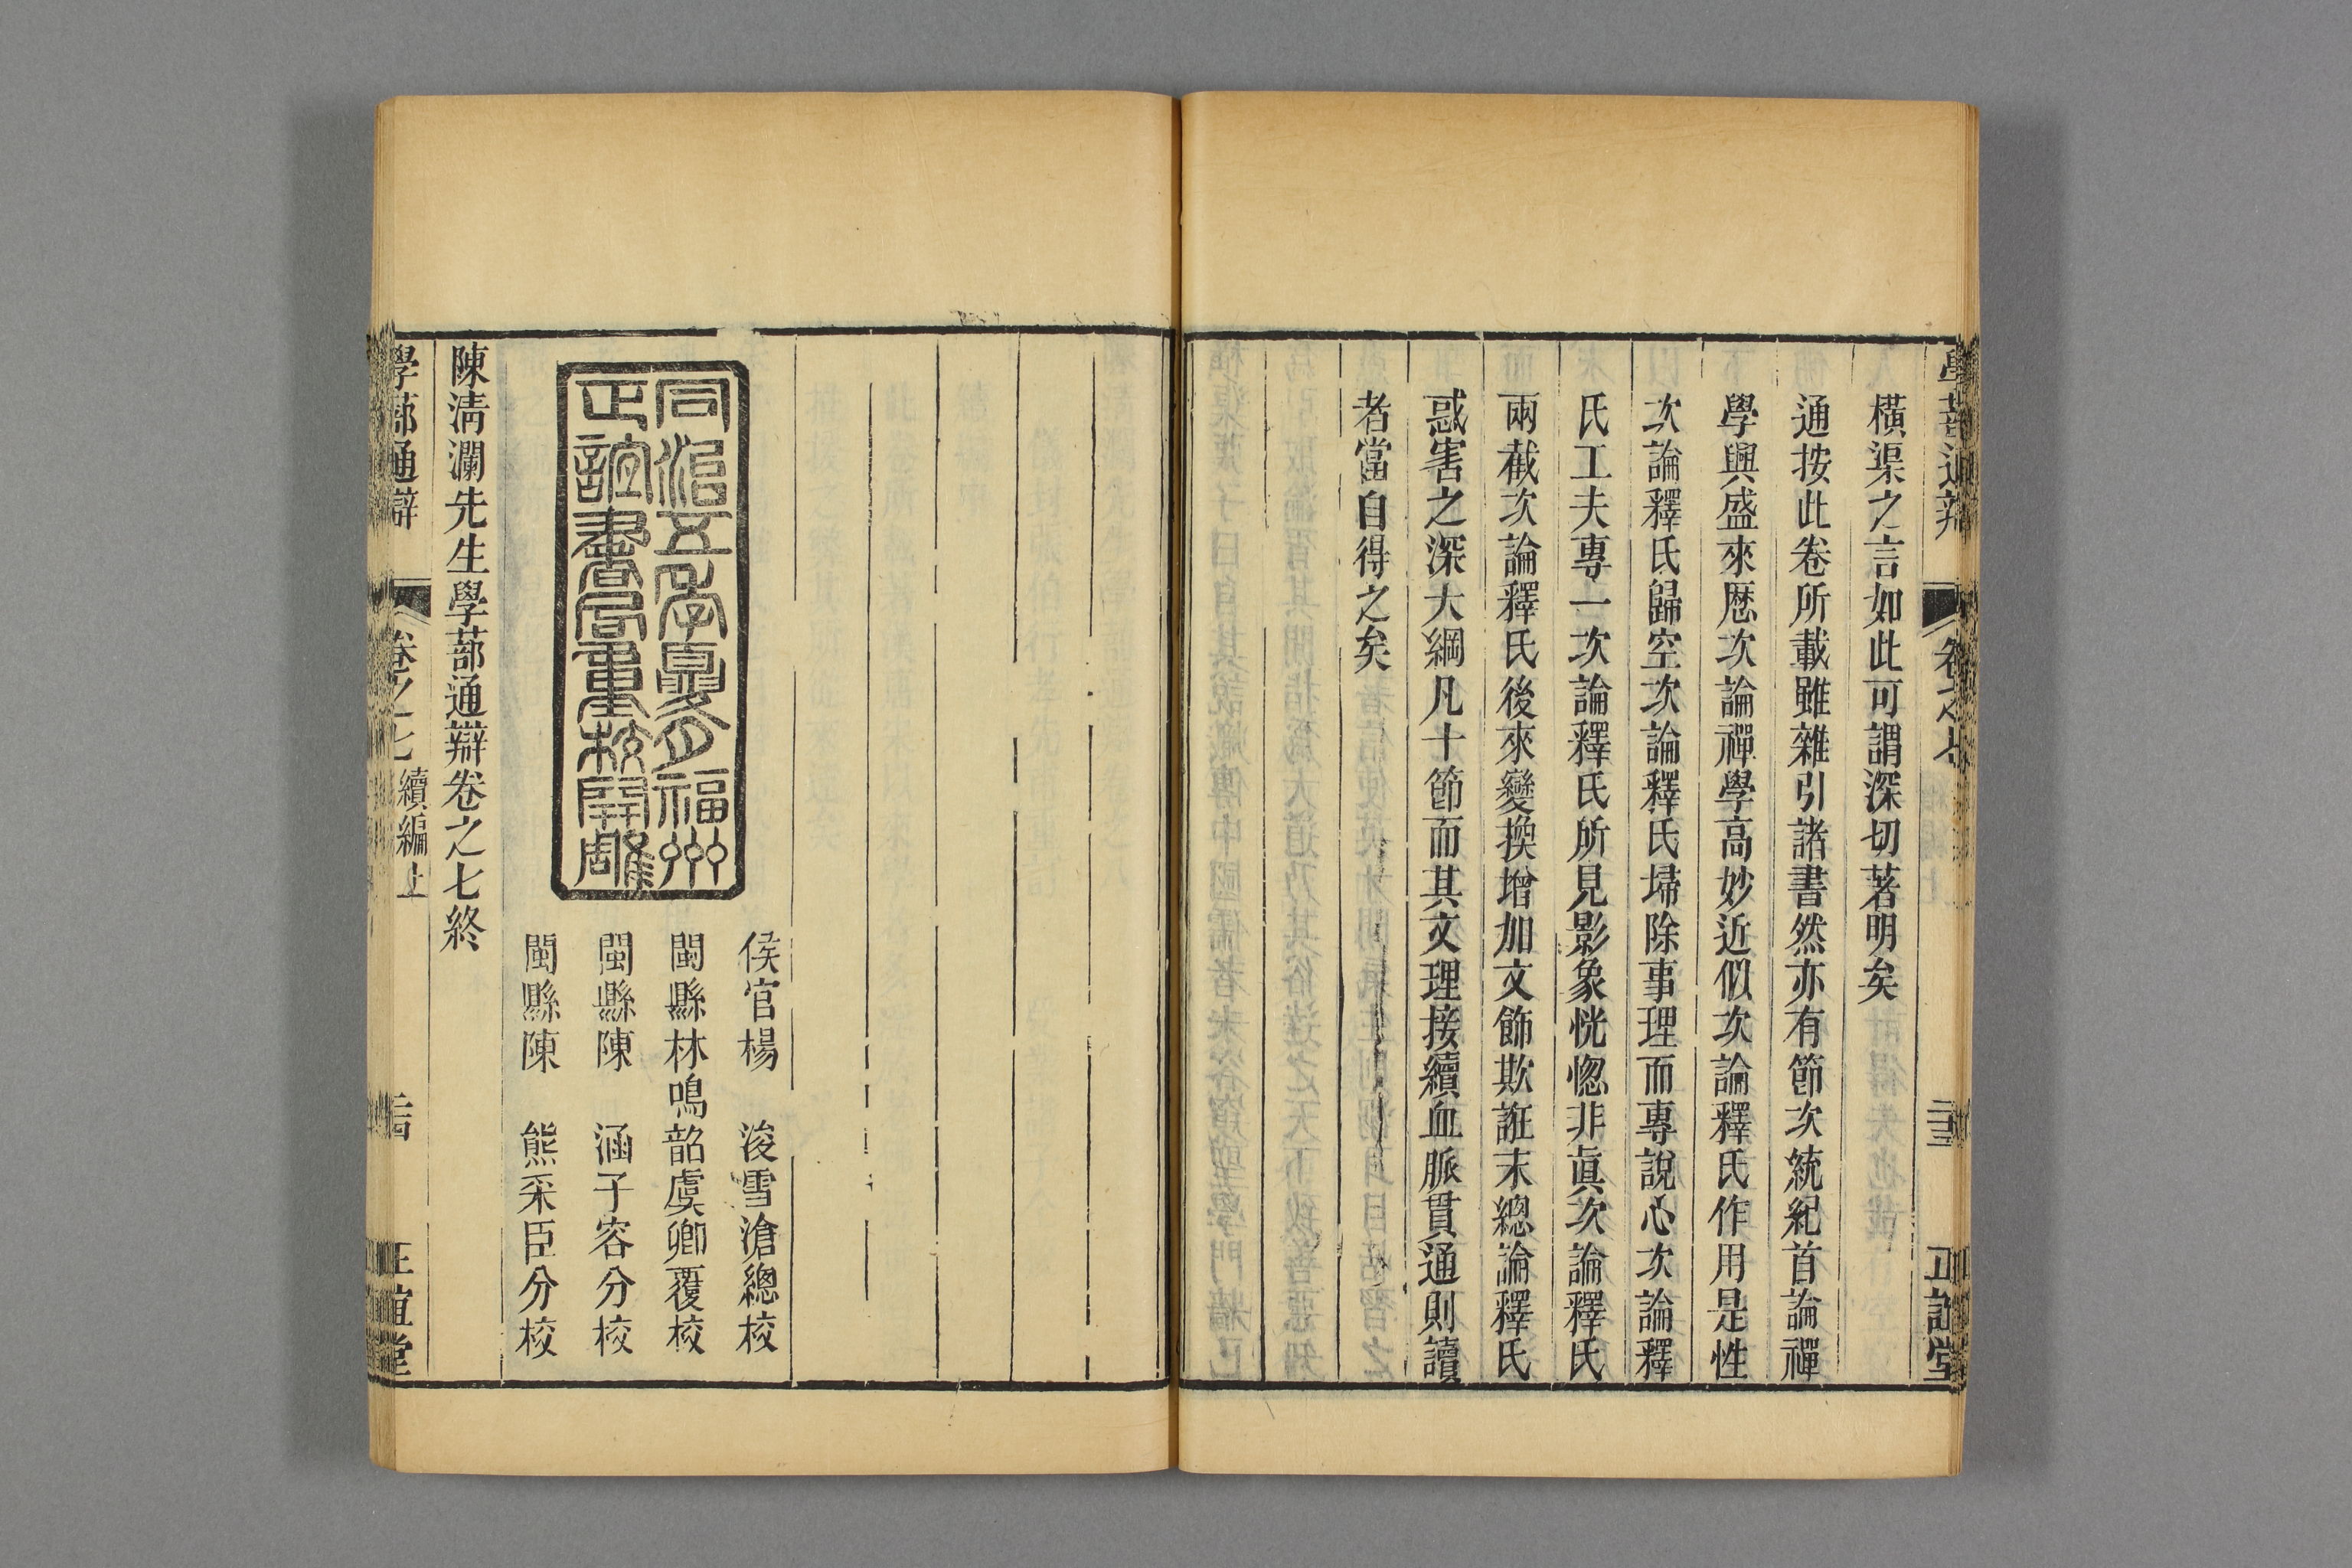 橫渠之言如此可謂深切著明矣
通按此卷所載雖雜引諸書然亦有節次統紀首論禪
學興盛來歷次論禪學高妙近似次論釋氏作用是性
次論釋氏歸空次論釋氏埽除事理而專說心次論釋
氏工夫專一次論釋氏所見影象恍惚非眞次論釋氏
兩截次論釋氏後來變換增加文飾欺誑末總論釋氏
惑害之深大綱凡十節而其文理接續血脈貫通則讀
者當自得之矣
同治五年夏月福州
正誼書局重校開雕
侯官楊 浚雪滄總校
閩縣林鳴韶虞卿覆校
閩縣陳 涵子容分校
閩縣陳 熊采臣分校
陳淸瀾先生學蔀通辯卷之七終
學蔀通辯 卷之七 續編上 正誼堂